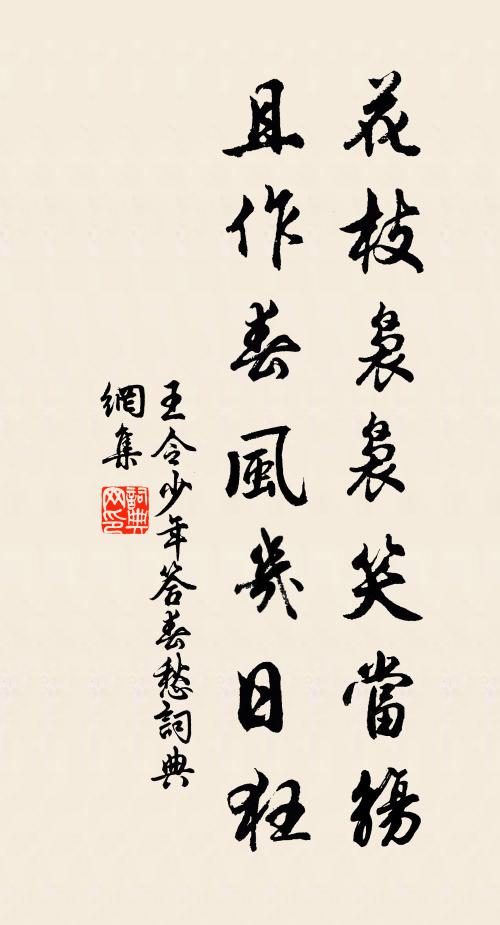 花枝裊裊笑當觴
且作春風幾日狂
王令少年答春愁詞典
網集
詞典網印